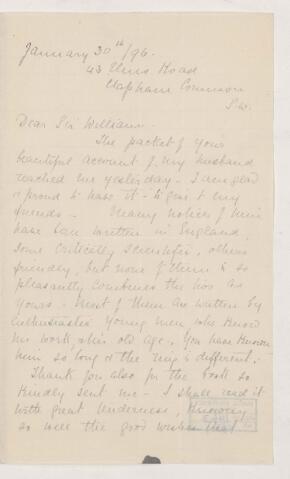 January 30th/96.
43 Elms Road
Clapham Common
S.W.
Dear Sir William
The packet of your
beautiful account of my husband
reached me yesterday - I am glad
& proud to have it - to give to my
friends - Many notices of him
have been written in England,
some critically scientific, others
friendly, but none of them so
pleasantly combines the two as
yours - Most of them are written by
enthusiastic young men who knew
his work, & his old age - You have known
him so long & the ring is different.
Thank you also for the book so
kindly sent me - I shall read it
with great tenderness, knowing
so well the good